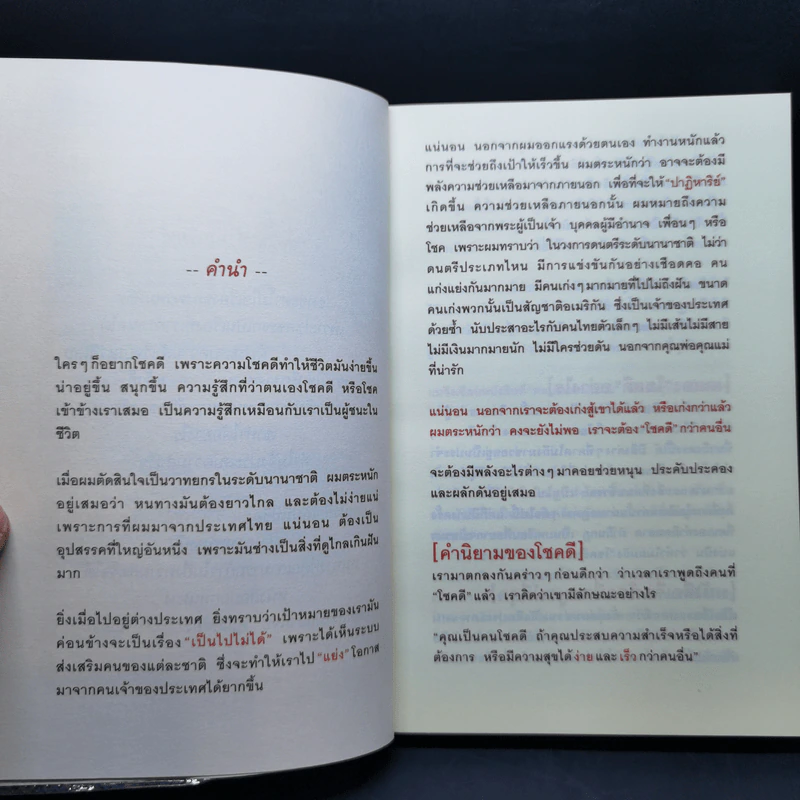 -- คำนำ --
ใครๆ ก็อยากโชคดี เพราะความโชคดีทำให้ชีวิตมันง่ายขึ้น
น่าอยู่ขึ้น สนุกขึ้น ความรู้สึกที่ว่าตนเองโชคดี หรือโชค
เข้าข้างเราเสมอ เป็นความรู้สึกเหมือนกับเราเป็นผู้ชนะใน
ชีวิต
เมื่อผมตัดสินใจเป็นวาทยกรในระดับนานาชาติ ผมตระหนัก
อยู่เสมอว่า หนทางมันต้องยาวไกล และต้องไม่ง่ายแน่
เพราะการที่ผมมาจากประเทศไทย แน่นอน ต้องเป็น
อุปสรรคที่ใหญ่อันหนึ่ง เพราะมันช่างเป็นสิ่งที่ดูไกลเกินฝัน
มาก
ยิ่งเมื่อไปอยู่ต่างประเทศ ยิ่งทราบว่าเป้าหมายของเรามัน
ค่อนข้างจะเป็นเรื่อง "เป็นไปไม่ได้" เพราะได้เห็นระบบ
ส่งเสริมคนของแต่ละชาติ ซึ่งจะทำให้เราไป "แย่ง" โอกาส
มาจากคนเจ้าของประเทศได้ยากขึ้น
แน่นอน นอกจากผมออกแรงด้วยตนเอง ทำงานหนักแล้ว
การที่จะช่วยถึงเป้าให้เร็วขึ้น ผมตระหนักว่า อาจจะต้องมี
พลังความช่วยเหลือมาจากภายนอก เพื่อที่จะให้ "ปาฏิหาริย์"
เกิดขึ้น ความช่วยเหลือภายนอกนั้น ผมหมายถึงความ
ช่วยเหลือจากพระผู้เป็นเจ้า บุคคลผู้มีอำนาจ เพื่อนๆ หรือ
โชค เพราะผมทราบว่า ในวงการดนตรีระดับนานาชาติ ไม่ว่า
ดนตรีประเภทไหน มีการแข่งขันกันอย่างเชือดคอ คน
เก่งแย่งกันมากมาย มีคนเก่งๆ มากมายที่ไปไม่ถึงฝัน ขนาด
คนเก่งพวกนั้นเป็นสัญชาติอเมริกัน ซึ่งเป็นเจ้าของประเทศ
ด้วยซ้ำ นับประสาอะไรกับคนไทยตัวเล็กๆ ไม่มีเส้นไม่มีสาย
ไม่มีเงินมากมายนัก ไม่มีใครช่วยดัน นอกจากคุณพ่อคุณแม่
ที่น่ารัก
แน่นอน นอกจากเราจะต้องเก่งสู้เขาได้แล้ว หรือเก่งกว่าแล้ว
ผมตระหนักว่า คงจะยังไม่พอ เราจะต้อง "โชคดี" กว่าคนอื่น
จะต้องมีพลังอะไรต่างๆ มาคอยช่วยหนุน ประคับประคอง
และผลักดันอยู่เสมอ
[คำนิยามของโชคดี]
เรามาตกลงกันคร่าวๆ ก่อนดีกว่า ว่าเวลาเราพูดถึงคนที่
"โชคดี" แล้ว เราคิดว่าเขามีลักษณะอย่างไร
"คุณเป็นคนโชคดี ถ้าคุณประสบความสำเร็จหรือได้สิ่งที่
ต้องการ หรือมีความสุขได้ ง่าย และ เร็ว กว่าคนอื่น"